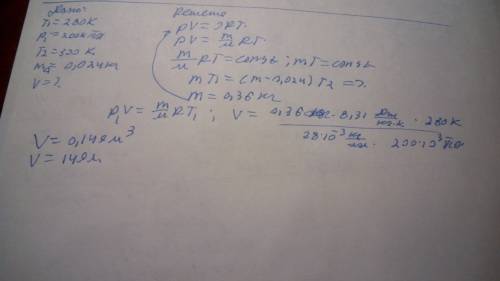 Дано:
T₁ = 280K
p₁ = 200кПа
T₂ = 300 K
m = 0,024кг
V = ?
Решение
pV = νRT.
pV = m/μ RT.
m/μ RT = const; mT = const
mT₁ = (m - 0,024) T₂ =>
m = 0,36 кг
p₁V = m/μ RT₁; V = 0,36 кг · 8,31 Дж/ · 280K
28·10⁻³ кг/ · 200·10³ Па
V = 0,149м³
V = 149л